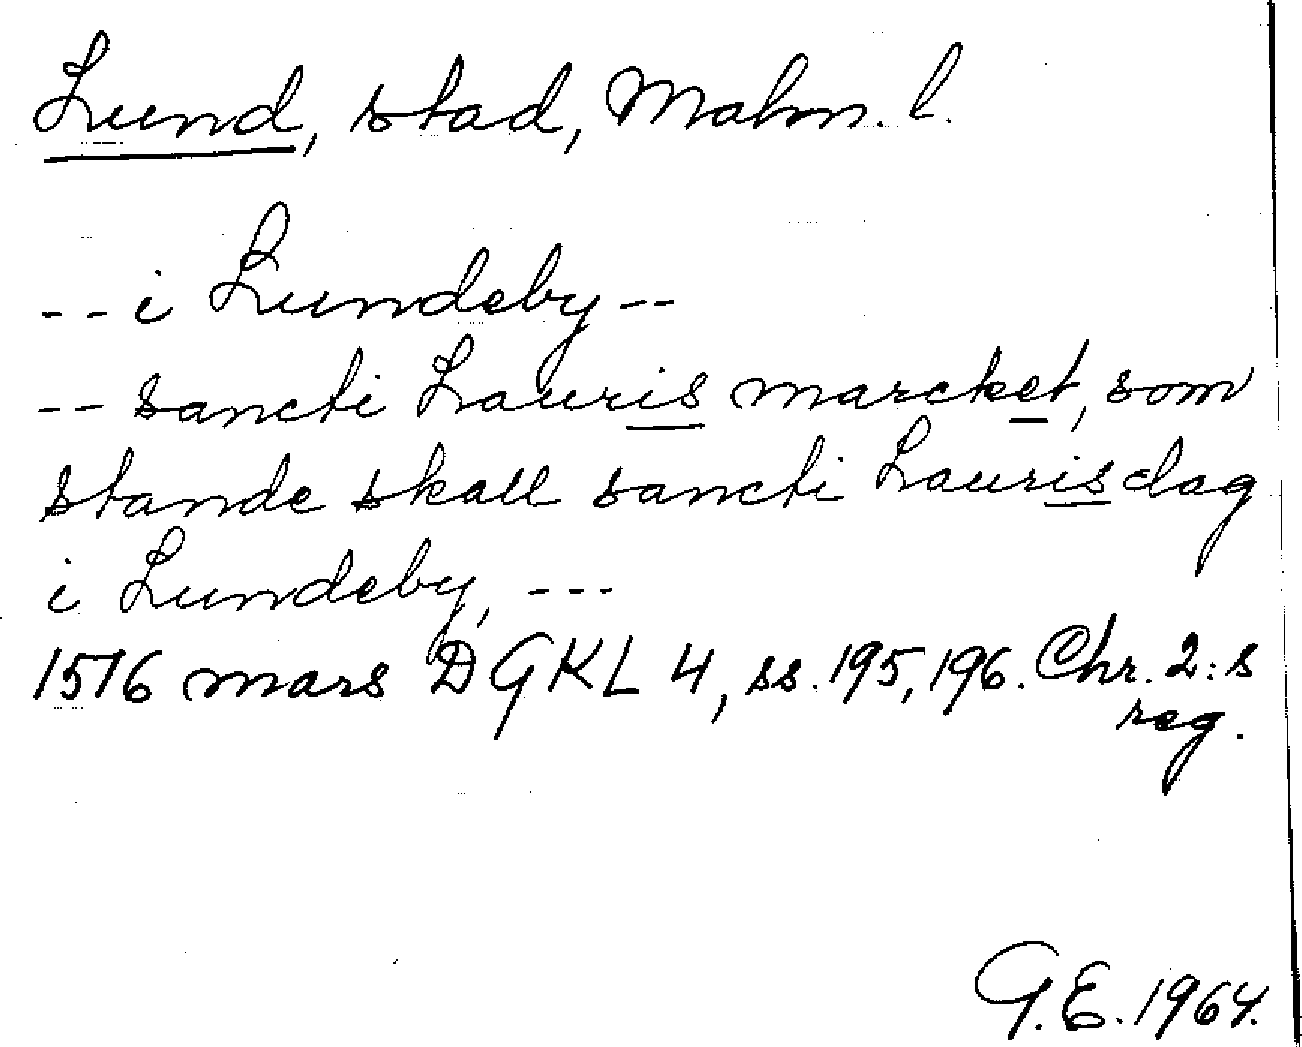 Lund, stad, Malm. l.
-- i Lundeby --
-- sancti Lauris marcket, som
stande skall sancti Laurisdag
i Lundeby, ---
1516 mars DGKL 4, ss. 195, 196. Chr. 2:s
reg.
G.E. 1964.